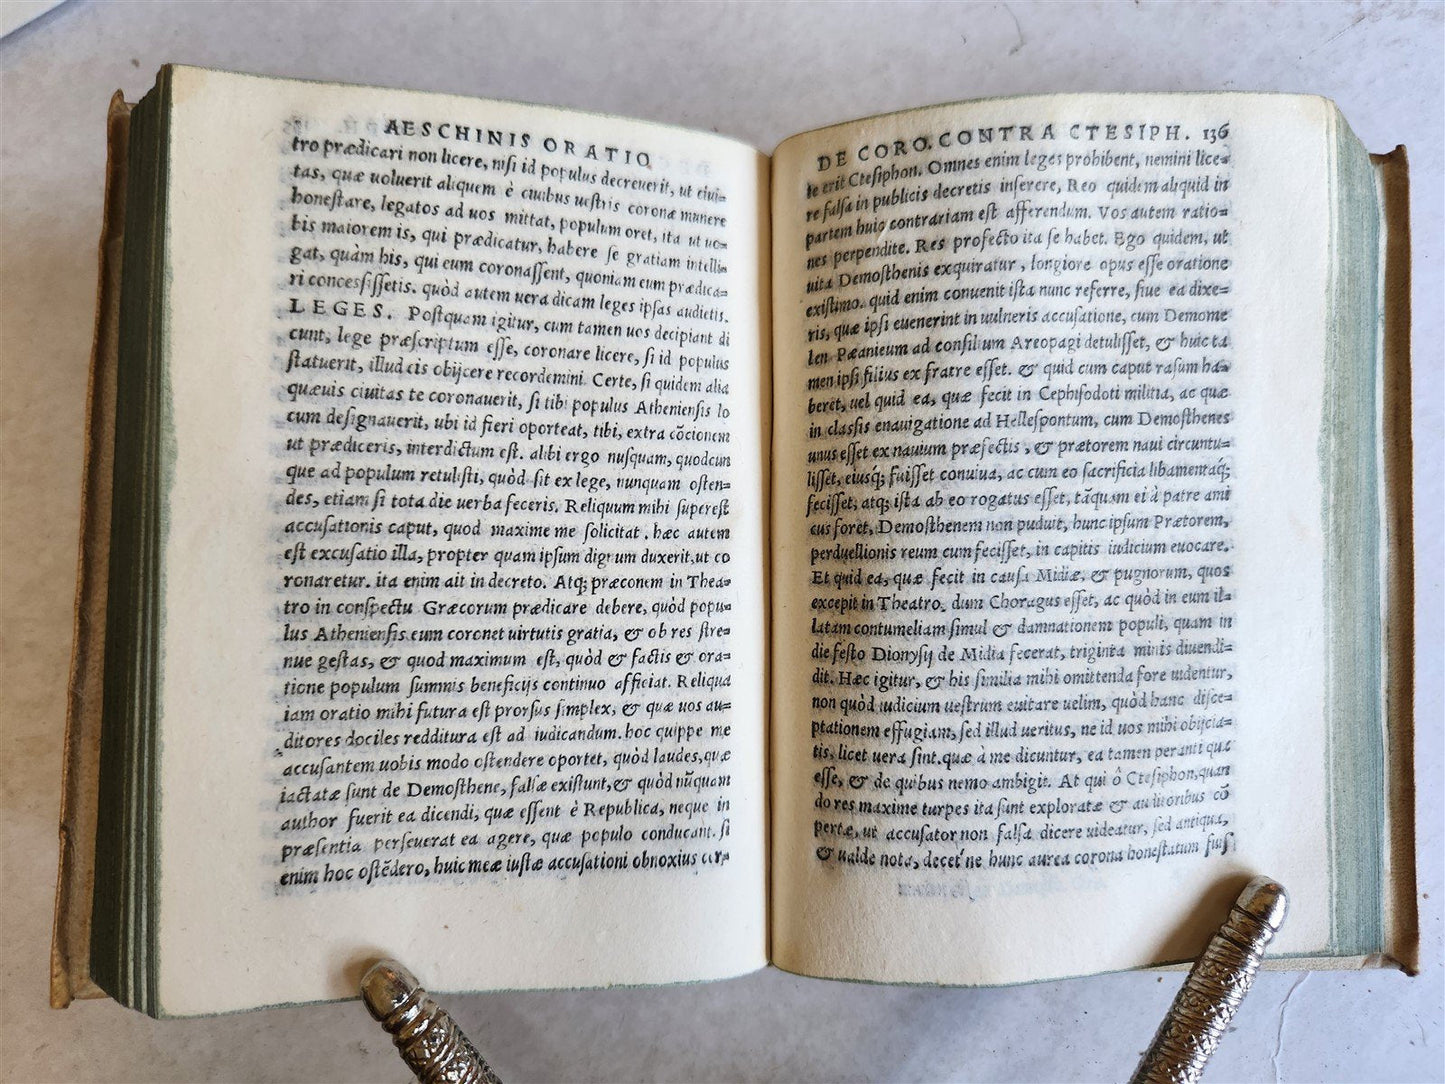 AESCHINIS ORATIO
tro prædicari non licere, niſi id populus decreuerit, ut ciui=
tas, quæ uoluerit aliquem è ciuibus ueſtris corona munere
honeſtare, legatos ad uos mittat, populum oret, ita ut uo=
bis maiorem is, qui prædicatur, habere ſe gratiam intelli=
gat, quàm his, qui eum coronaſſent, quoniam eum prædica=
ri conceſsiſſetis. quòd autem uera dicam leges ipſas audietis.
LEGES. Poſtquam igitur, cum tamen uos decipiant di
cunt, lege præſcriptum eſſe, coronare licere, ſi id populus
ſtatuerit, illud eis obijcere recordemini. Certe, ſi quidem alia
quæuis ciuitas te coronauerit, ſi tibi populus Athenienſis lo
cum deſignauerit, ubi id fieri oporteat, tibi, extra cõcionem
ut prædiceris, interdictum eſt. alibi ergo nuſquam, quodcun
que ad populum retuliſti, quòd ſit ex lege, nunquam oſten=
des, etiam ſi tota die uerba feceris. Reliquum mihi ſupereſt
accuſationis caput, quod maxime me ſolicitat. hæc autem
eſt excuſatio illa, propter quam ipſum dignum duxerit, ut co
ronaretur. ita enim ait in decreto. Atq; præconem in Thea=
tro in conſpectu Græcorum prædicare debere, quòd popu=
lus Athenienſis eum coronet uirtutis gratia, & ob res ſtre=
nue geſtas, & quod maximum eſt, quòd & factis & ora=
tione populum ſummis beneficijs continuo afficiat. Reliqua
iam oratio mihi futura eſt prorſus ſimplex, & quæ uos au=
ditores dociles redditura eſt ad iudicandum. hoc quippe me
accuſantem uobis modo oſtendere oportet, quòd laudes, quæ
iactatæ ſunt de Demoſthene, falſæ exiſtunt, & quòd nũquam
author fuerit ea dicendi, quæ eſſent è Republica, neque in
præſentia perſeuerat ea agere, quæ populo conducant. ſi
enim hoc oſtẽdero, huic meæ iuſtæ accuſationi obnoxius cer=
DE CORO. CONTRA CTESIPH. 136
te erit Cteſiphon. Omnes enim leges prohibent, nemini lice=
re falſa in publicis decretis inſerere, Reo quidem aliquid in
partem huic contrariam eſt afferendum. Vos autem ratio=
nes perpendite. Res profecto ita ſe habet. Ego quidem, ut
uita Demoſthenis exquiratur, longiore opus eſſe oratione
exiſtimo. quid enim conuenit iſta nunc referre, ſiue ea dixe=
ris, quæ ipſi euenerint in uulneris accuſatione, cum Demome
len Pæanieum ad conſilium Areopagi detuliſſet, & huic ta
men ipſi filius ex fratre eſſet. & quid cum caput raſum ha=
beret, uel quid ea, quæ fecit in Cephiſodoti militia, ac quæ
in claſſis enauigatione ad Helleſpontum, cum Demoſthenes
unus eſſet ex nauium præfectis, & prætorem naui circuntu=
liſſet, eiusq́; fuiſſet conuiua, ac cum eo ſacrificia libamentaq́;
feciſſet, atq; iſta ab eo rogatus eſſet, tãquam ei à patre ami
cus foret, Demoſthenem non puduit, hunc ipſum Prætorem,
perduellionis reum cum feciſſet, in capitis iudicium euocare.
Et quid ea, quæ fecit in cauſa Midiæ, & pugnorum, quos
excepit in Theatro, dum Choragus eſſet, ac quòd in eum il=
latam contumeliam ſimul & damnationem populi, quam in
die feſto Dionyſij de Midia fecerat, triginta minis diuendi=
dit. Hæc igitur, & his ſimilia mihi omittenda fore uidentur,
non quòd iudicium ueſtrum euitare uelim, quòd hanc diſce=
ptationem effugiam, ſed illud ueritus, ne id uos mihi obijcia=
tis, licet uera ſint. quæ à me dicuntur, ea tamen peranti qua
eſſe, & de quibus nemo ambigit. At qui ô Cteſiphon, quan
do res maxime turpes ita ſunt exploratæ & auditoribus cõ
pertæ, ut accuſator non falſa dicere uideatur, ſed antiqua,
& ualde nota, decet ne hunc aurea corona honeſtatum fuiſ